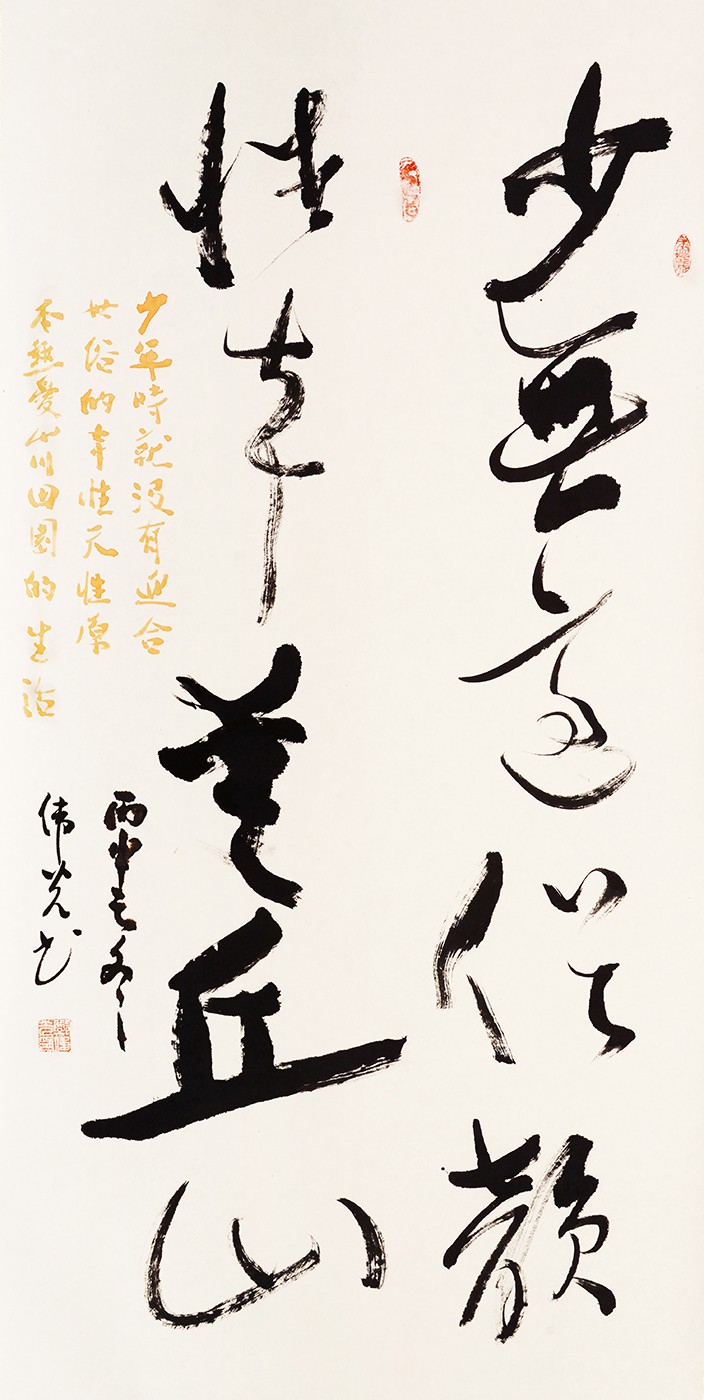 少無適俗韻
性本愛丘山
少年時就没有迎合
世俗的本性天性原
本熱愛山川田園的生活
丙申之冬
伟光书